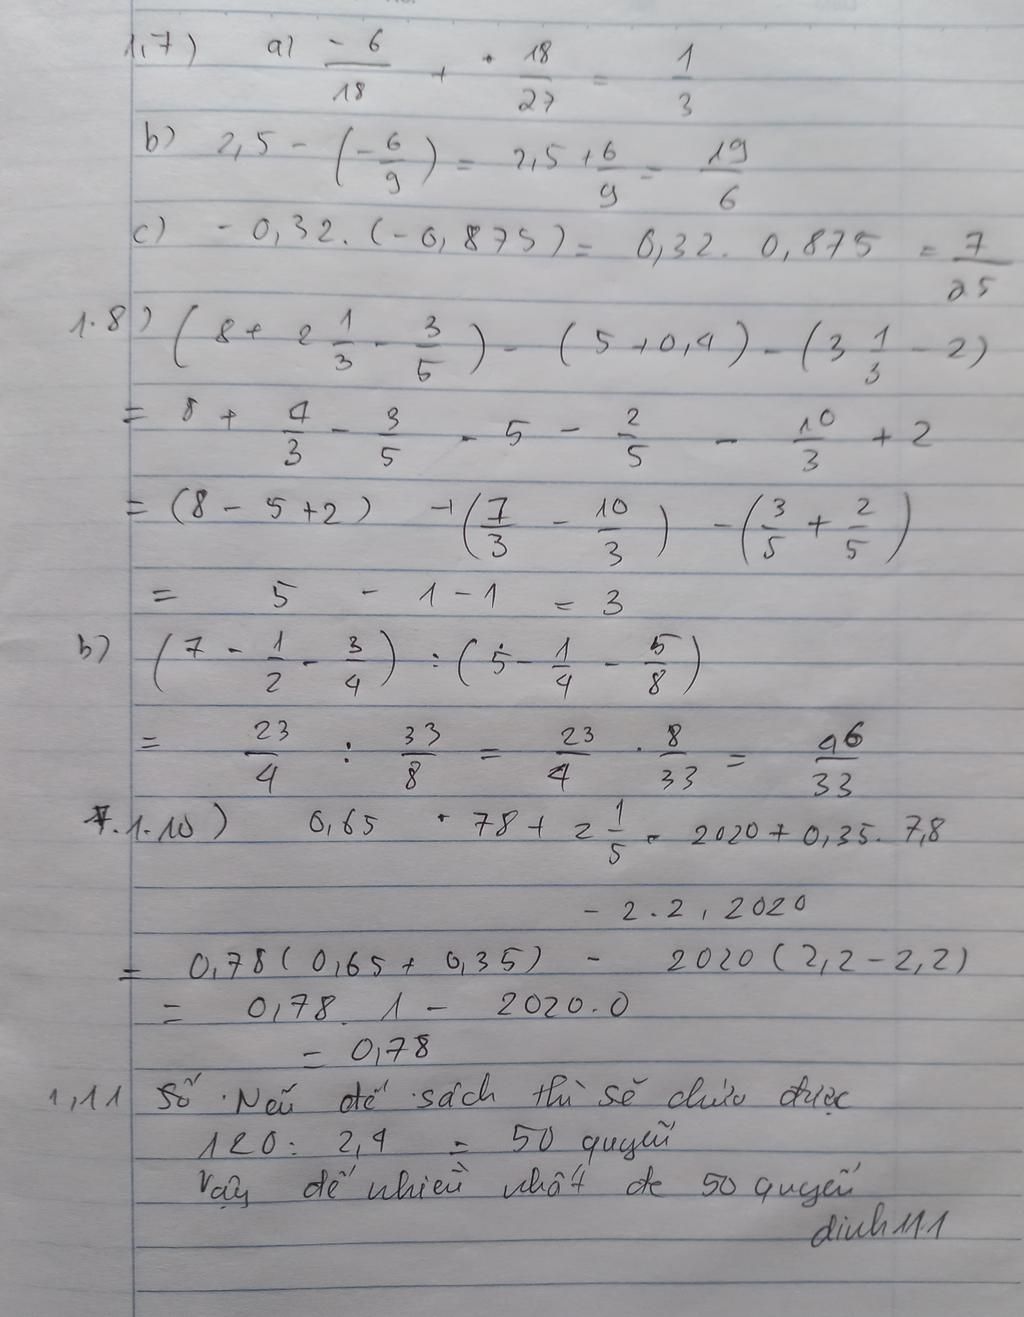 1,7) a) -6/18 + 18/27 = 1/3
b) 2,5 - (-6/9) = 2,5 + 6/9 = 19/6
c) -0,32.(-0,875) = 0,32. 0,875 = 7/25
1.8) (8 + 2 1/3 - 3/5) - (5 + 0,4) - (3 1/3 - 2)
= 8 + 4/3 - 3/5 - 5 - 2/5 - 10/3 + 2
= (8 - 5 + 2) + (7/3 - 10/3) - (3/5 + 2/5)
= 5 - 1 - 1 = 3
b) (7 - 1/2 - 3/4) : (5 - 1/4 - 5/8)
= 23/4 : 33/8 = 23/4 . 8/33 = 46/33
1.10) 0,65 . 78 + 2 1/5 . 2020 + 0,35. 7,8
- 2.2, 2020
= 0,78(0,65 + 0,35) - 2020(2,2 - 2,2)
= 0,78. 1 - 2020.0
= 0,78
1,11 Số Nếu để sách thì sẽ chứa được
120: 2,4 = 50 quyển
Vậy để nhiều nhất 50 quyển